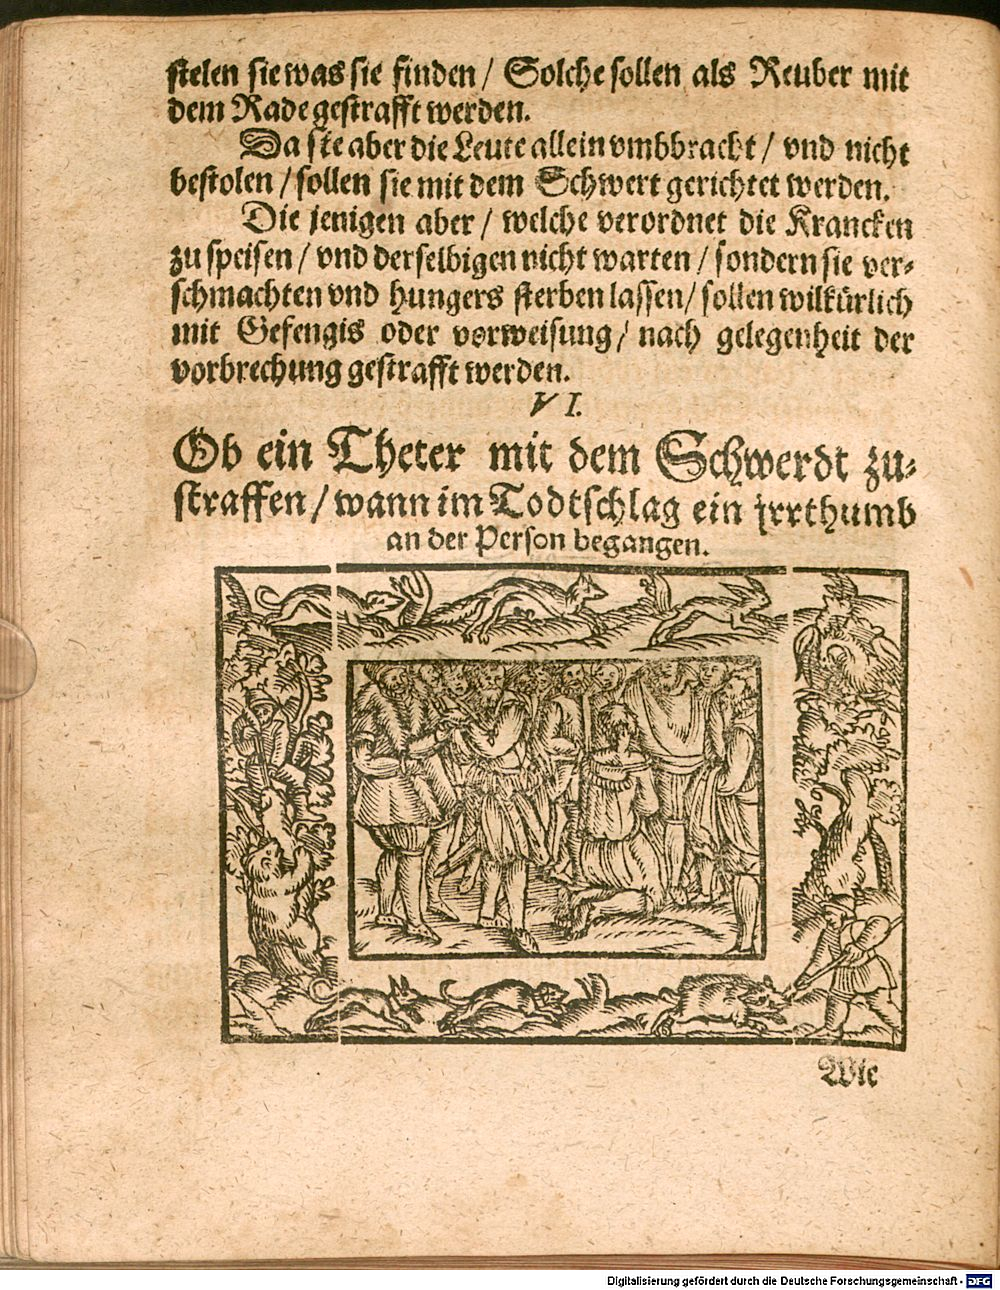 stelen sie was sie finden / Solche sollen als Reuber mit
dem Rade gestrafft werden.
Da sie aber die Leute allein vmbbracht / vnd nicht
bestolen / sollen sie mit dem Schwert gerichtet werden.
Die jenigen aber / welche verordnet die Krancken
zu speisen / vnd derselbigen nicht warten / sondern sie ver-
schmachten vnd hungers sterben lassen / sollen wilkürlich
mit Gefengis oder vorweisung / nach gelegenheit der
vorbrechung gestrafft werden.
VI.
Ob ein Theter mit dem Schwerdt zu-
straffen / wann im Todtschlag ein jrrthumb
an der Person begangen.
Wie
Digitalisierung gefördert durch die Deutsche Forschungsgemeinschaft - DFG